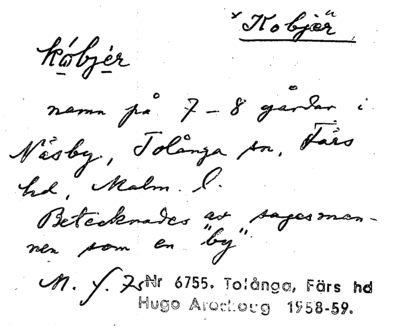 "Kobjer"
kó̱bjér
namn på 7-8 gårdar i
Näsby, Tolånga sn, Färs
hd, Malm. l.
Betecknades av sagesman-
nen som en "by"
M. S. Nr 6755. Tolånga, Färs hd
Hugo Areskoug 1958-59.